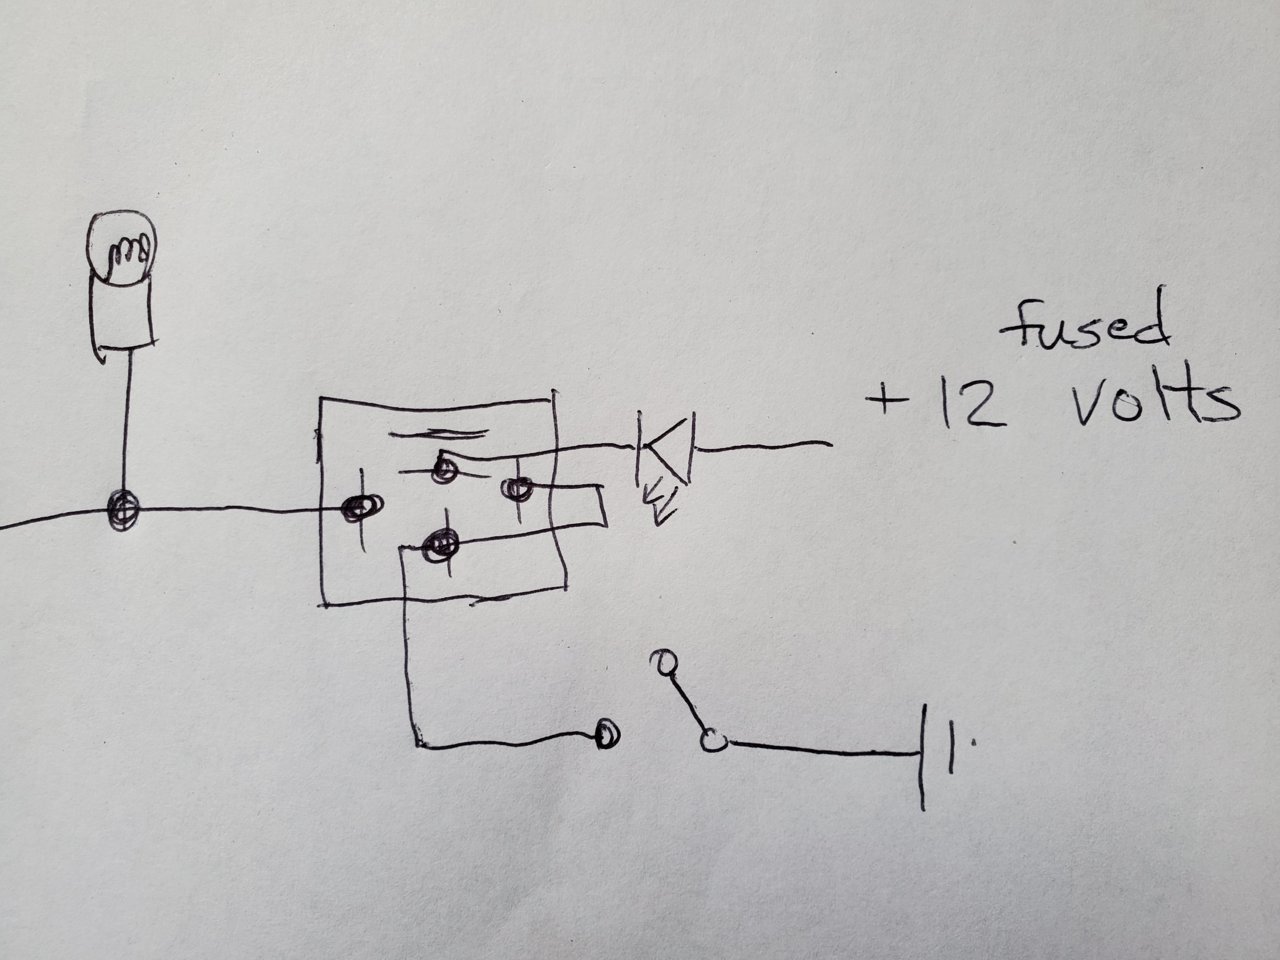 fused
+ 12 volts